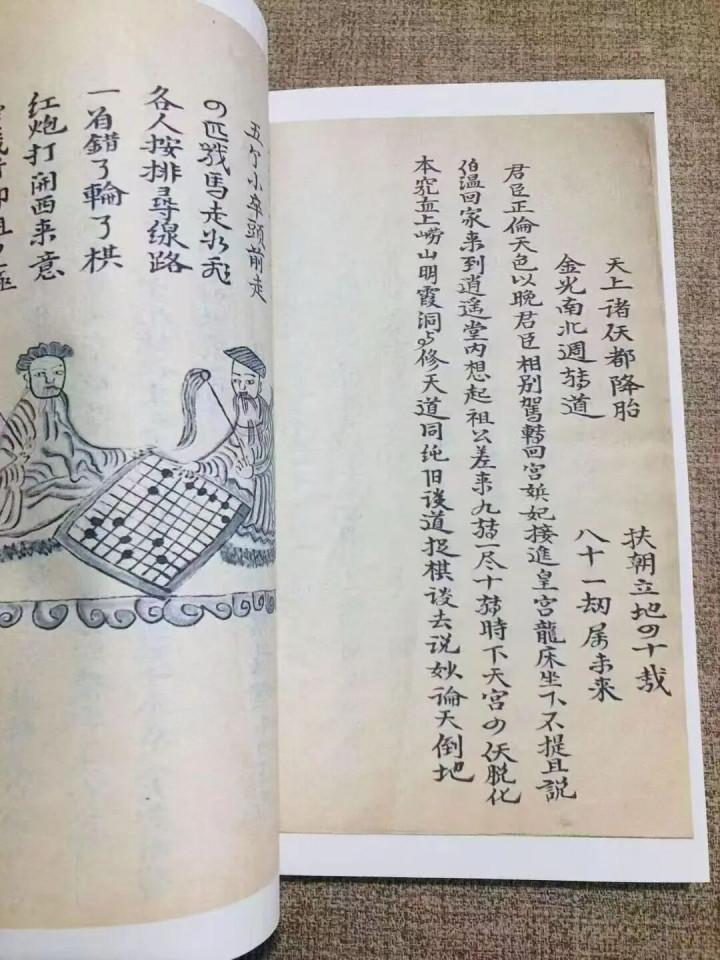 天上诸仸都降胎 扶朝立地の十哉
金光南北週转道 八十一刼属未来
君臣正倫天色以晚君臣相别駕轉回宫嫔妃接進皇宫龍床坐下不提且説
伯温回家来到逍遥堂内想起祖公差来九转一尽十转時下天宫の仸脱化
本究血上崂山明霞洞与修天道同纯旧谈道捉棋谈去说妙論天倒地
五个小卒頭前走
の匹戰馬走如飛
各人按排尋線路
一着錯了輪了棋
红炮打開西来意